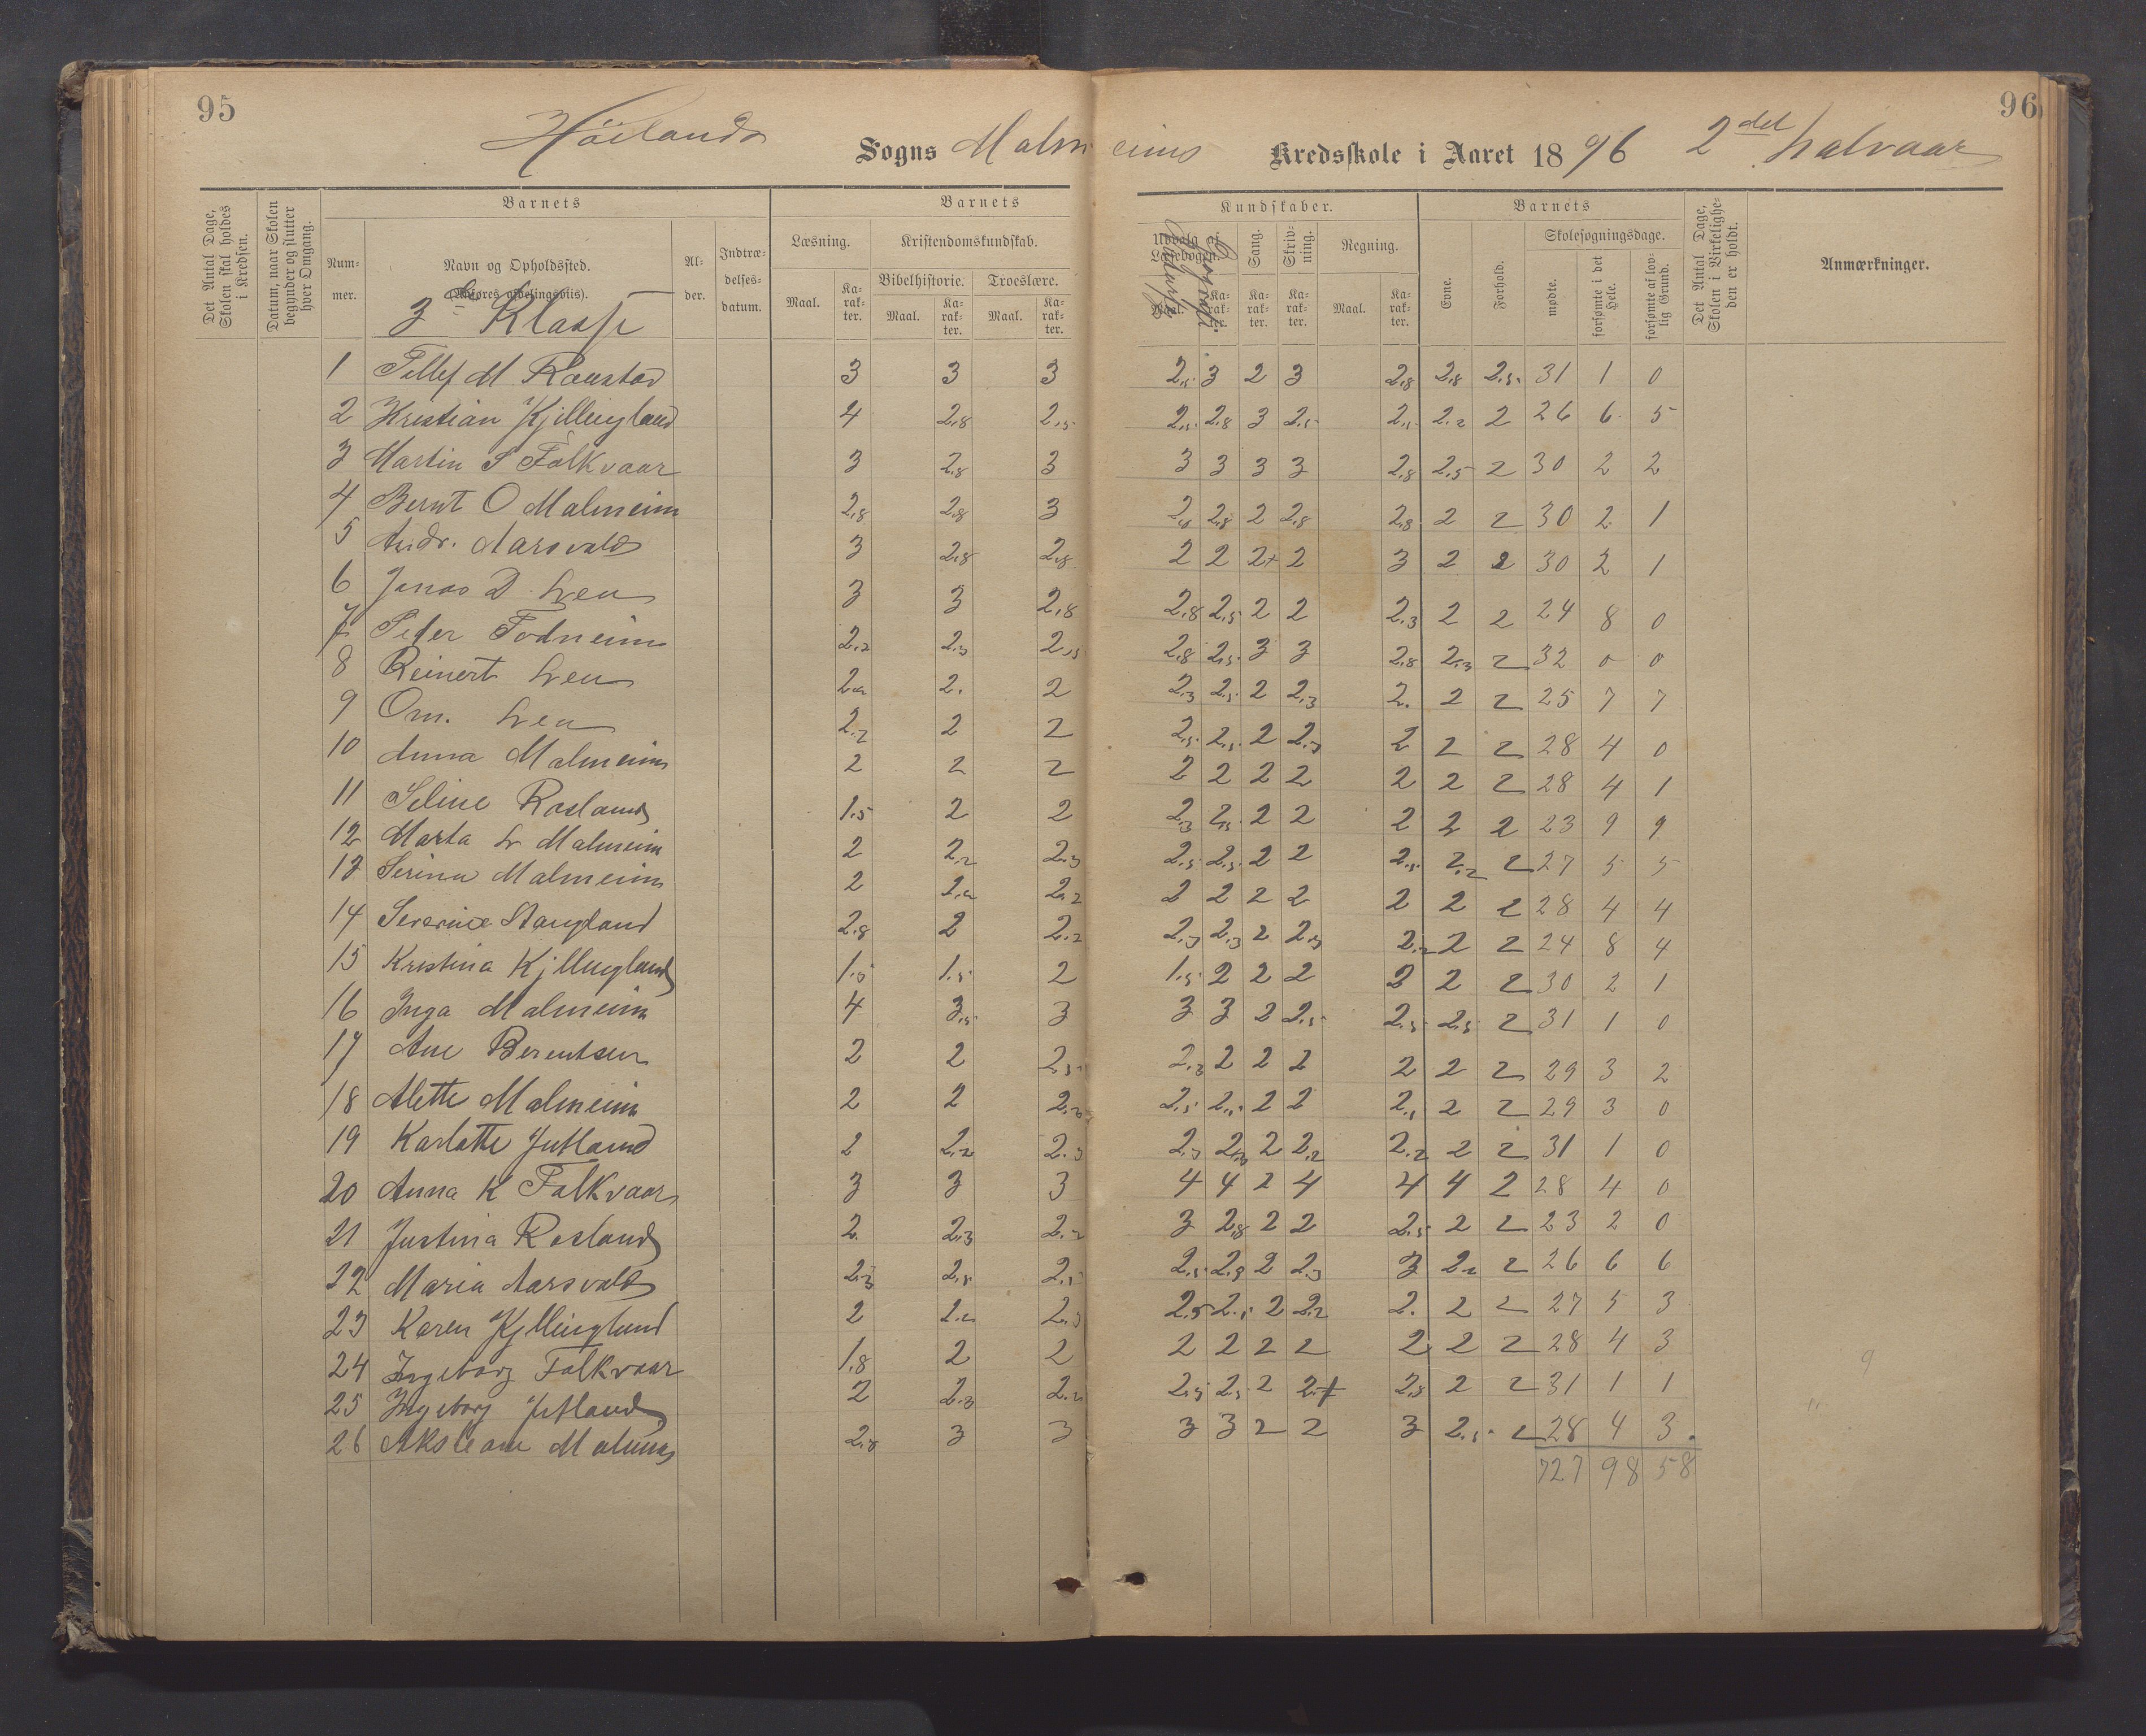 95
96
Höilands Sogns Malmeims Kredsskole i Aaret 1896 2det halvaar
Det Antal Dage, Skolen skal holdes i Kredsen.
Datum, naar Skolen begynder og slutter hver Omgang.
Barnets
Barnets
Kundskaber.
Barnets
Det Antal Dage, Skolen i Virkeligheden er holdt.
Anmærkninger.
Nummer.
Navn og Opholdssted.
(Anføres afdelingsviis).
3 Klasse
Alder.
Indtrædelses-datum.
Læsning.
Kristendomskundskab.
Bibelhistorie.
Troeslære.
Udvalg af Læsebogen.
Sang.
Skrivning.
Regning.
Evne.
Forhold.
Skolesøgningsdage.
mødte.
forsømte i det Hele.
forsømte af lovlig Grund.
Maal. Karakter. Maal. Karakter. Maal. Karakter. Maal. Karakter. Karakter. Karakter. Maal. Karakter.
1 Tellef M Raustad 3 3 3 2,5 3 2 3 2,8 2,8 2,5 31 1 0
2 Kristian Kjillingland 4 2,8 2,5 2,5 2,8 3 2,5 2,5 2,2 2 26 6 5
3 Martin S Folkvaar 3 2,8 3 3 3 3 3 2,8 2,5 2 30 2 2
4 Bernt O Malmeim 2,8 2,8 3 2,8 2,8 2 2,8 2,8 2 2 30 2 1
5 Andr. Aarsvald 3 2,8 2,8 2 2 2+ 2 3 2 2 30 2 1
6 Jonas D Lea 3 3 2,8 2,8 2,5 2 2 2,3 2 2 24 8 0
7 Peder Todneim 2,2 2,3 2,5 2,8 2,5 3 3 2,8 2,3 2 32 0 0
8 Reinert Lea 2,2 2. 2 2,3 2,5 2 2,3 2. 2 2 25 7 7
9 Om. Lea 2,2 2 2 2,5 2,5 2 2,3 2 2 2 28 4 0
10 Anna Malmeim 2 2 2 2 2 2 2 2 2 2 28 4 1
11 Seline Rosland 1.5 2 2 2,3 2,5 2 2 2 2 2 23 9 9
12 Marta L Malmeim 2 2,2 2,3 2,5 2,5 2 2 2,5 2,2 2 27 5 5
13 Serina Malmeim 2 2,2 2,2 2 2 2 2 2 2 2 28 4 4
14 Severine Stangland 2,8 2 2,2 2,3 2,3 2 2,3 2,2 2 2 24 8 4
15 Kristina Kjillingland 1,5 1,5 2 1,5 2 2 2 2 2 2 30 2 1
16 Inga Malmeim 4 3,5 3 3 3 2 2,5 2,5 2,5 2 31 1 0
17 Ane Berentsen 2 2 2,5 2,3 2 2 2 2 2 2 29 3 2
18 Alette Malmeim 2 2 2,2 2,5 2,5 2 2 2,5 2 2 29 3 0
19 Karlotte Jutland 2 2,2 2,3 2,3 2,3 2 2,2 2,2 2 2 31 1 0
20 Anna K Folkvaar 3 3 3 4 4 2 4 4 4 2 28 4 0
21 Justina Rosland 2. 2,3 2,2 3 2,8 2 2 2,5 2 2 23 2 0
22 Maria Aarsvald 2,3 2,5 2,5 2,5 2,3 2 2,3 3 2,2 2 26 6 6
23 Karen Kjillingland 2 2,2 2,3 2,5 2,5 2 2,2 2. 2 2 27 5 3
24 Ingeborg Folkvaar 1,8 2 2 2 2 2 2 2 2 2 28 4 3
25 Ingeborg Jutland 2 2,3 2,2 2,5 2,5 2 2,+ 2,3 2 2 31 1 1
26 Malmeim 2,8 3 3 3 3 2 2 3 2,5 2 28 4 3
727 98 58